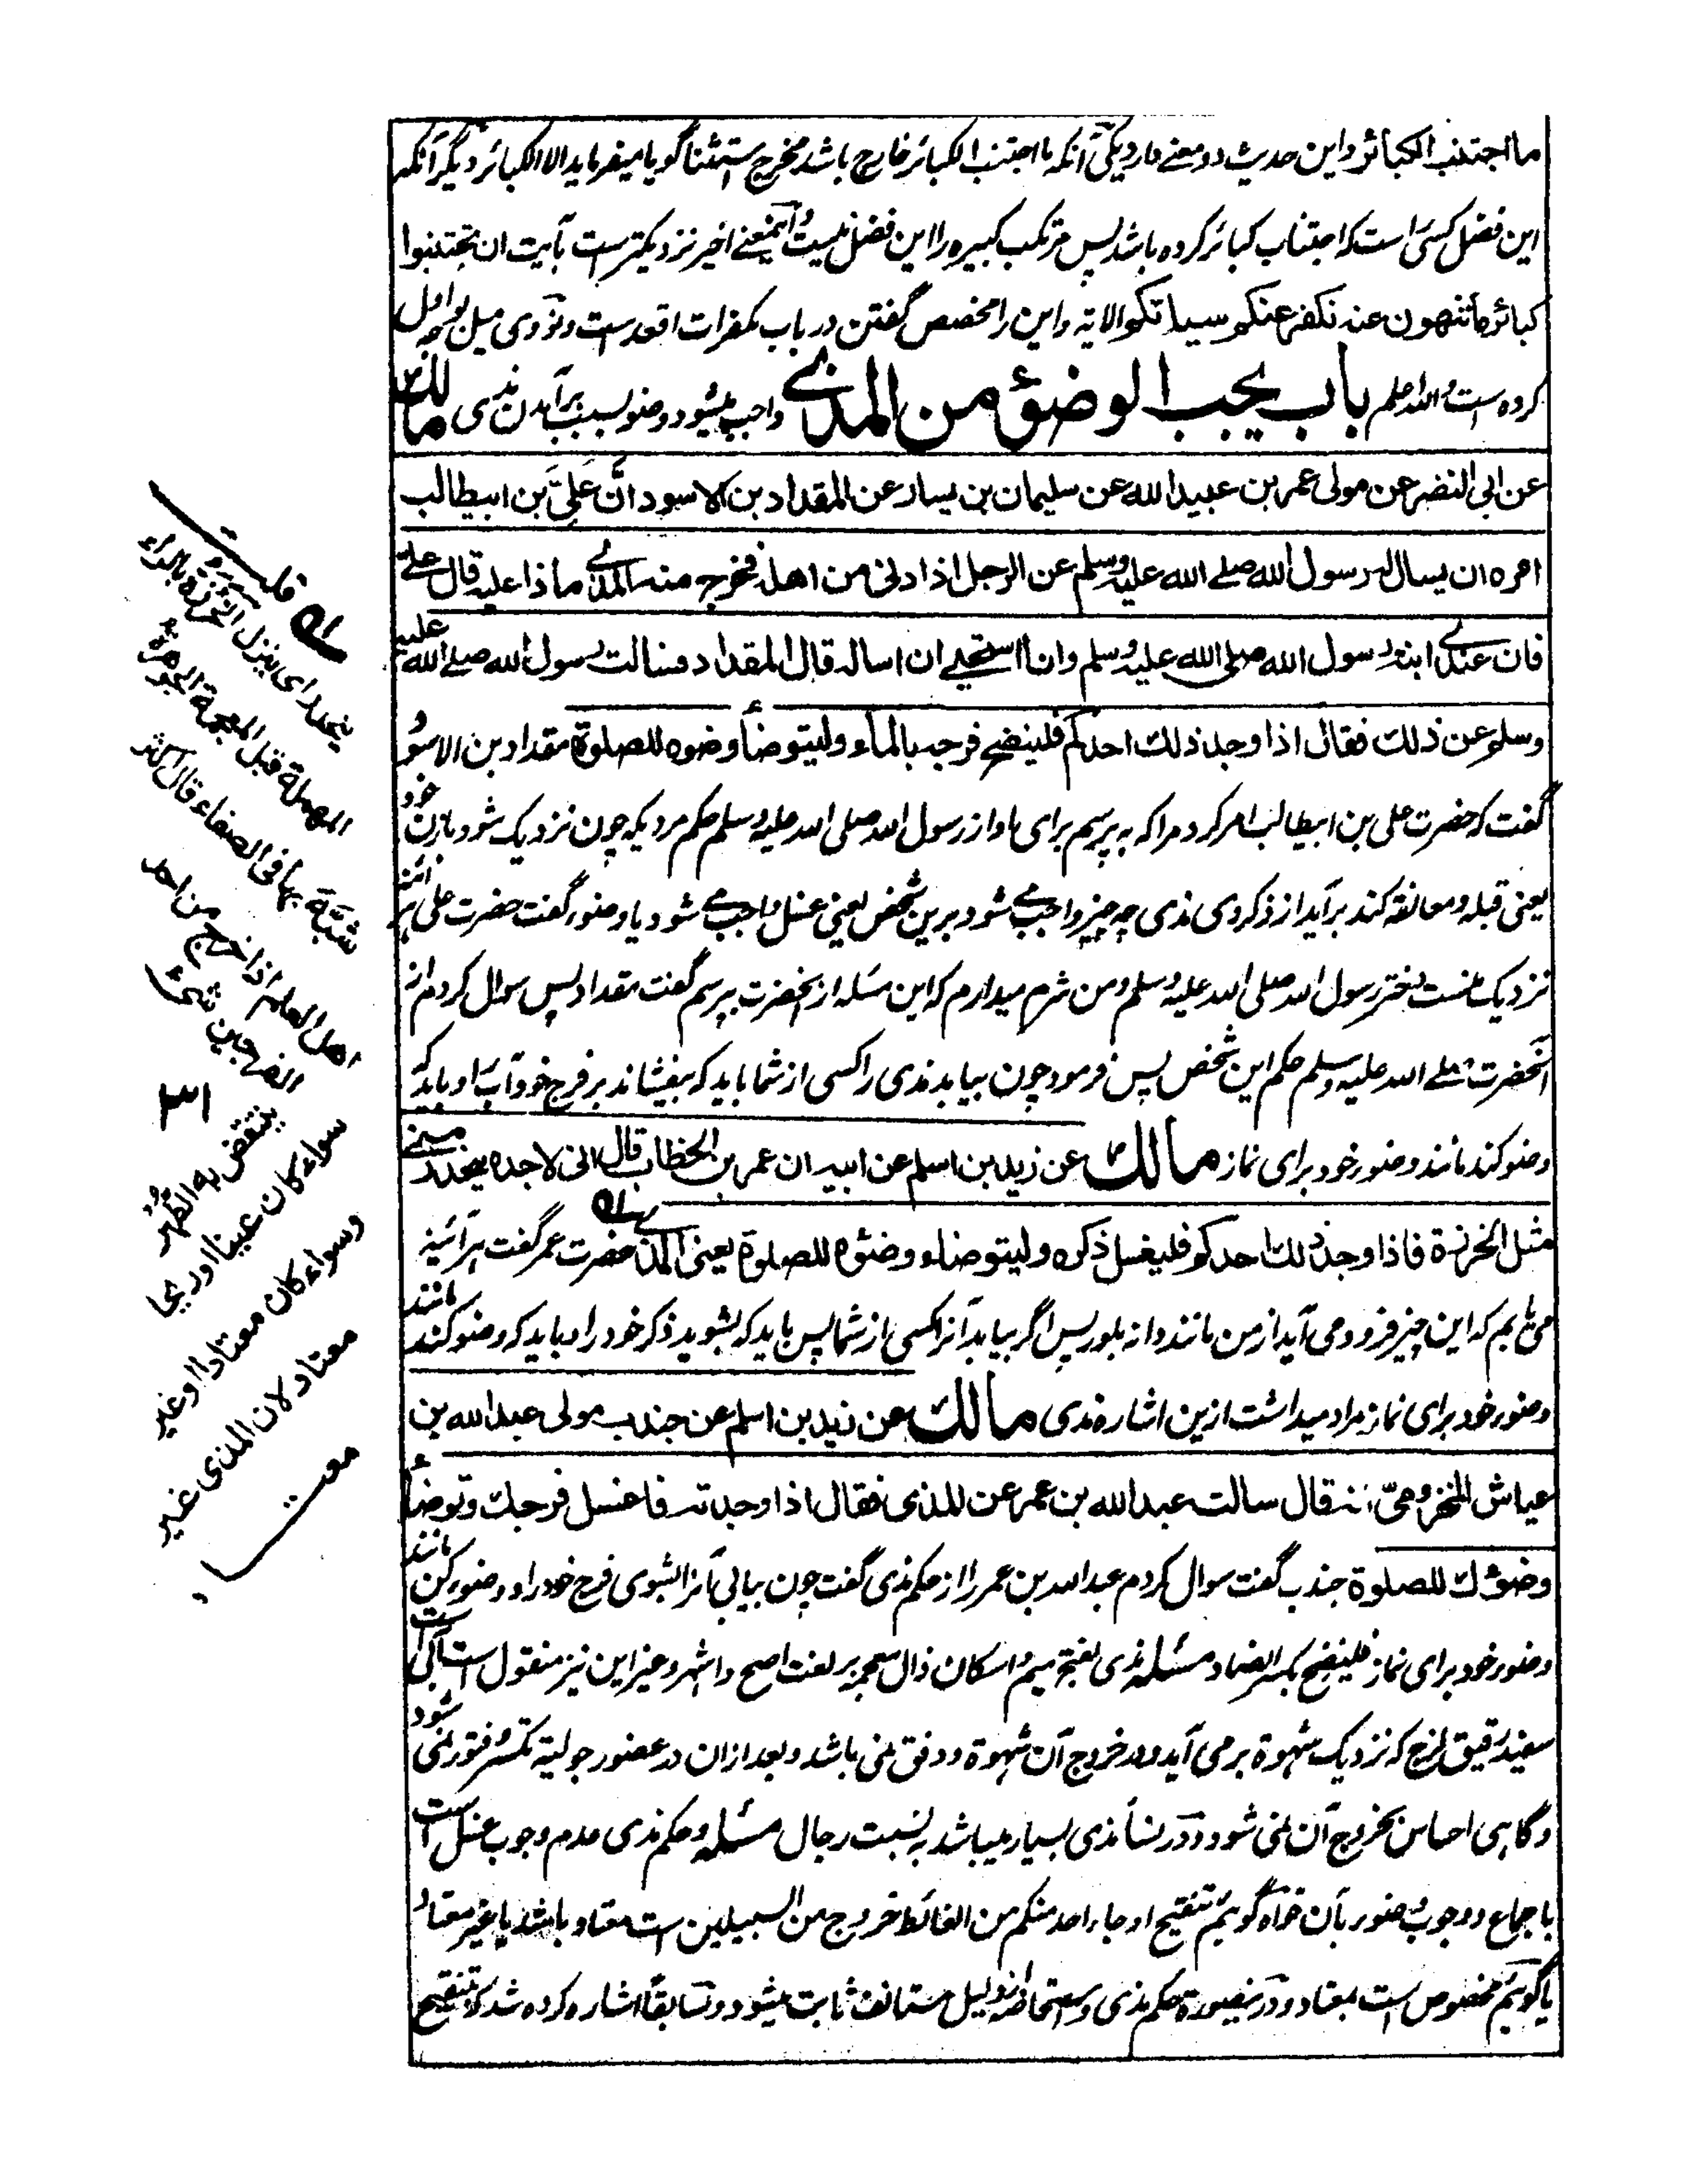 ما اجتنب الکبائر و این حدیث دو معنے دارد یکی آنکه ما اجتنب الکبائر خارج باشد مخرج استثنا گویا میفرماید الا الکبائر دیگر آنکه
این فضل کسی است که اجتناب کبائر کرده باشد پس مرتکب کبیره را این فضل نیست و اینمعنے اخیر نزدیکتر است بآیت ان تجتنبوا
کبائر ما تنهون عنه نکفر عنکم سیاتکم الایة و این را مخصص گفتن در باب مکفرات اقعد ست و نووی میل بوجه اول
کرده است والله اعلم باب یجب الوضوء من المذے واجب میشود وضو بسبب برآمدن مذی مالك
عن ابی النضر عن مولی عمر بن عبید الله عن سلیمان بن یسار عن المقداد بن الاسود انّ علیّ بن ابیطالب
امره ان یسال له رسول الله صلے الله علیه وسلم عن الرجل اذا دنی من اهله فخرج منه المذے ماذا علیه قال علے
فان عندی ابنة رسول الله صلی الله علیه وسلم وانا استحیے ان اساله قال المقداد فسالت رسول الله صلے الله علیه
وسلم عن ذلك فقال اذا وجد ذلك احدکم فلینضح فرجه بالماء ولیتوضأ وضوءه للصلوة مقداد بن الاسود
گفت که حضرت علی بن ابیطالب امر کرد مرا که به پرسم برای او از رسول الله صلی الله علیه وسلم حکم مردیکه چون نزدیک شود بازن خود
یعنی قبله و معانقه کند برآید از ذکر وی مذی چه چیز واجب مے شود برین شخص یعنی غسل واجب مے شود یا وضو گفت حضرت علی هر آئنه
نزدیک منست دختر رسول الله صلی الله علیه وسلم و من شرم میدارم که این مسئله از آنحضرت بپرسم گفت مقداد پس سوال کردم از
آنحضرت صلے الله علیه وسلم حکم این شخص پس فرمود چون بیابد مذی را کسی از شما باید که بیفشاند بر فرج خود آب را و باید که
وضو کند مانند وضوء خود برای نماز مالك عن زید بن اسلم عن ابیه ان عمر بن الخطاب قال انی لاجده ینحدر منے
مثل الخرزة فاذا وجد ذلك احدکم فلیغسل ذکره ولیتوضاء وضوءه للصلوة یعنی المذی حضرت عمر گفت هر آئینه
می یابم که این چیز فرود می آید از من مانند دانه بلور پس اگر بیابد آنرا کسی از شما پس باید که بشوید ذکر خود را و باید که وضو کند مانند
وضوء خود برای نماز مراد میداشت ازین اشاره مذی مالك عن زید بن اسلم عن جندب مولی عبد الله بن
عیاش المخزومیّ انه قال سالت عبد الله بن عمر عن المذی فقال اذا وجدته فاغسل فرجك وتوضأ
وضوءك للصلوة جندب گفت سوال کردم عبد الله بن عمر را از حکم مذی گفت چون بیابی آنرا بشوی فرج خود را و وضو کن مانند
وضوء خود برای نماز فلینضح بکسر الضاد مسئله مذی بفتح میم و اسکان ذال معجمه بر لغت اصح و اشهر و غیر این نیز منقول است آبی است
سفید رقیق لزج که نزدیک شهوة بر می آید و در خروج آن شهوة و دفق نمی باشد و بعد ازان در عضو رجولیة تکسر و فتور نمی شود
و گاهی احساس بخروج آن نمی شود و در نسا مذی بسیار میباشد به نسبت رجال مسئله و حکم مذی عدم وجوب غسل است
باجماع و وجوب وضو بآن خواه گوئیم تنقیح او جاء احد منکم من الغائط خروج من السبیلین ست معتاد باشد یا غیر معتاد
یا گوئیم مخصوص است بمعتاد و درینصورة حکم مذی و استحاضه بدلیل مستانف ثابت میشود و سابقاً اشاره کرده شد که تنقیح
له قلت
ینحدر ای ینزل الخرزة بالراء
المهملة قبل المعجمة الجوهرة
شبّه بها فی الصفاء قال اکثر
اهل العلم اذا خرج من احد
الفرجین شیء
ینتقض به الطُهر
سواء کان عینا او ریحا
وسواء کان معتادا او غیر
معتاد لان المذی غیر
معتاد